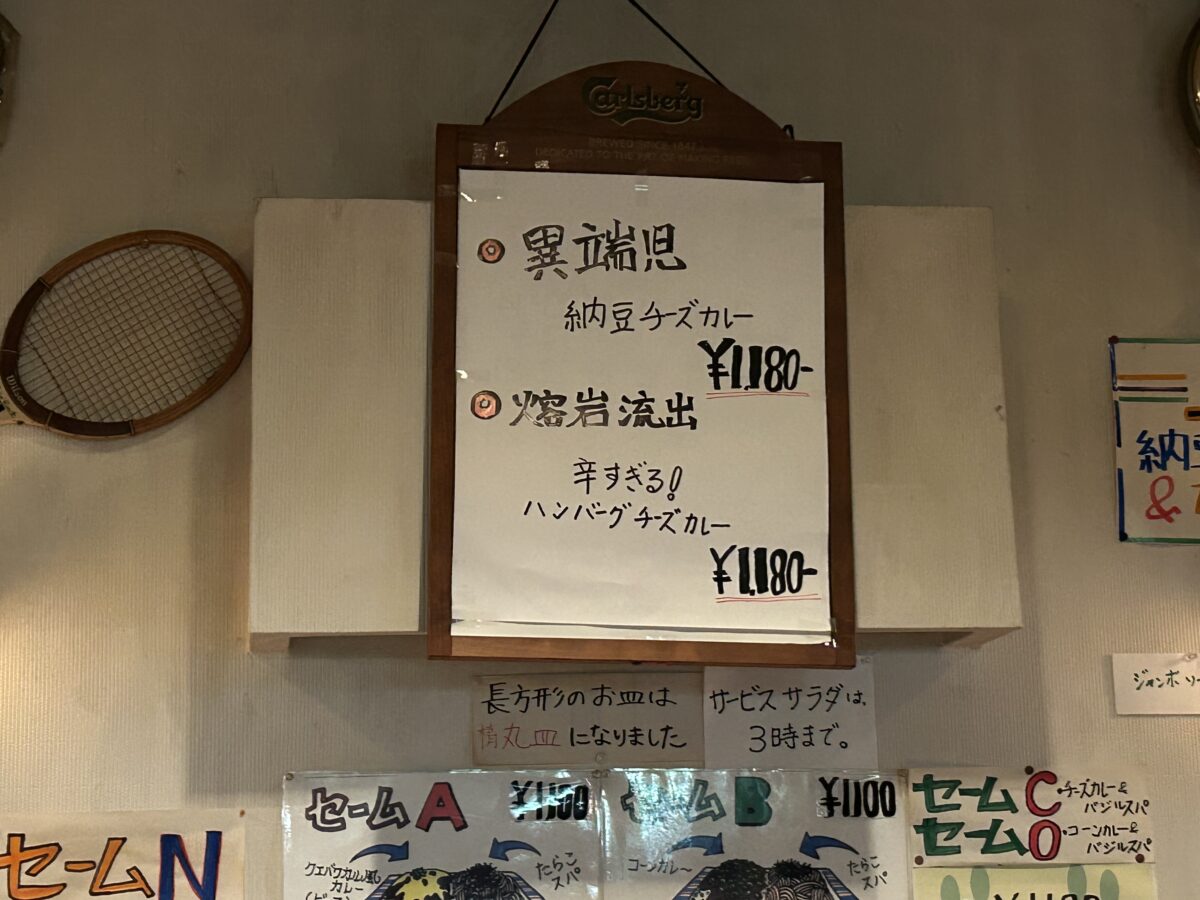 Carlsberg
BREWED SINCE 1847
DEDICATED TO THE ART OF MAKING BEER
異端児
納豆チーズカレー
¥1,180-
熔岩流出
辛すぎる!
ハンバーグチーズカレー
¥1,180-
Wilson
納豆
&
長方形のお皿は
楕丸皿になりました
サービスサラダは、
3時まで。
ジャンボ
セームA ¥1,100
たらこスパ
カレー
セームB ¥1,100
コーンカレー
たらこスパ
セームC・チーズカレー&バジルスパ
セームO・コーンカレー&バジルスパ
セームN